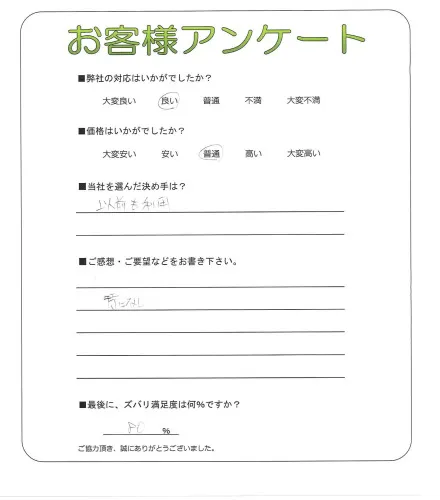 お客様アンケート
■弊社の対応はいかがでしたか？
大変良い 良い 普通 不満 大変不満
■価格はいかがでしたか？
大変安い 安い 普通 高い 大変高い
■当社を選んだ決め手は？
以前も利用
■ご感想・ご要望などをお書き下さい。
特になし
■最後に、ズバリ満足度は何%ですか？
80 %
ご協力頂き、誠にありがとうございました。